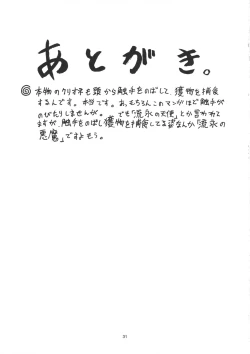 あとがき。
◎本物のクリオネも頭から触手をのばして、獲物を捕食
するんです。本当です。あ、もちろんこのマンガほど触手が
のびたりしませんが。でも「流氷の天使」とか言われて
ますが、触手をのばし獲物を捕食してる姿なんか「流氷の
悪魔」ですよもう。
31